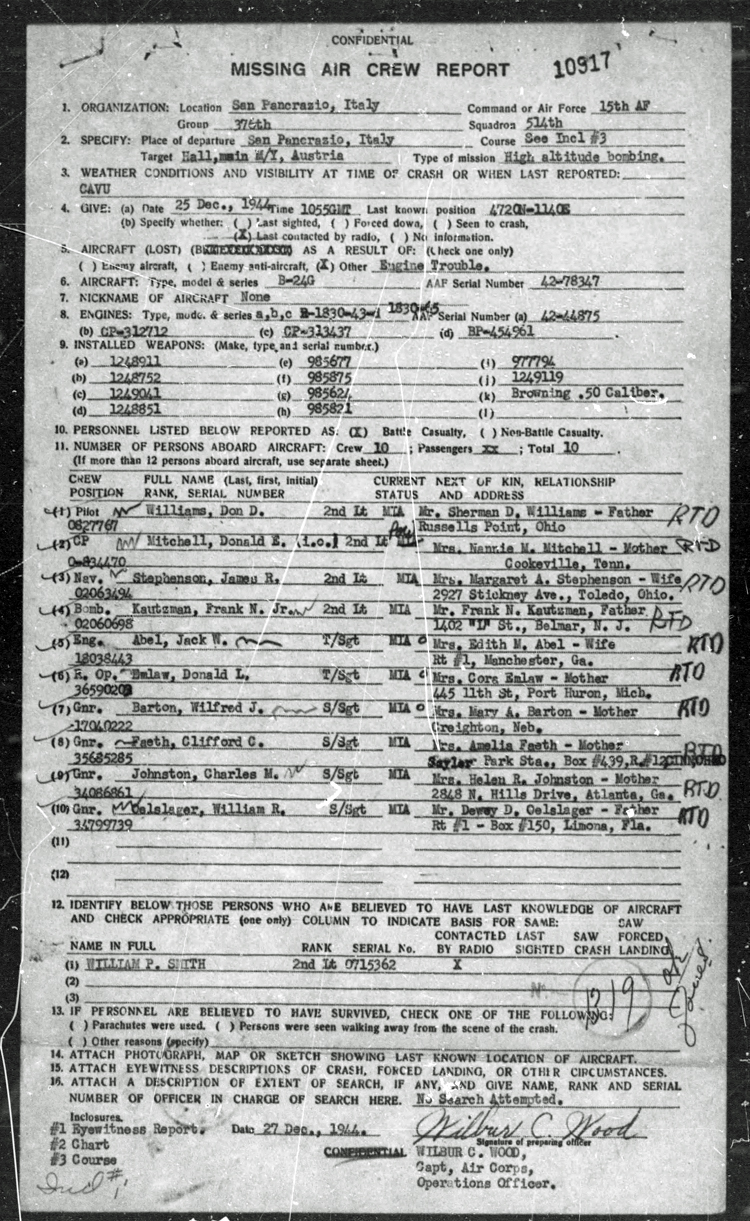 CONFIDENTIAL
MISSING AIR CREW REPORT 10917
1. ORGANIZATION: Location San Pancrazio, Italy Command or Air Force 15th AF
Group 376th Squadron 514th
2. SPECIFY: Place of departure San Pancrazio, Italy Course See Incl #3
Target Hall, main M/Y, Austria Type of mission High altitude bombing.
3. WEATHER CONDITIONS AND VISIBILITY AT TIME OF CRASH OR WHEN LAST REPORTED:
CAVU
4. GIVE: (a) Date 25 Dec., 1944 Time 1055GMT Last known position 4720N-1140E
(b) Specify whether: ( ) Last sighted, ( ) Forced down, ( ) Seen to crash,
(X) Last contacted by radio, ( ) No information.
5. AIRCRAFT (LOST) AS A RESULT OF: (Check one only)
( ) Enemy aircraft, ( ) Enemy anti-aircraft, (X) Other Engine Trouble.
6. AIRCRAFT: Type, model & series B-24G AAF Serial Number 42-78347
7. NICKNAME OF AIRCRAFT None
8. ENGINES: Type, mode. & series a,b,c R-1830-43-d 1830-65 AAF Serial Number (a) 42-44875
(b) CP-312712 (c) CP-313437 (d) BP-454961
9. INSTALLED WEAPONS: (Make, type and serial number.)
(a) 1248911 (e) 985677 (i) 977794
(b) 1248752 (f) 985875 (j) 1249119
(c) 1249041 (g) 985624 (k) Browning .50 Caliber.
(d) 1248851 (h) 985821 (l)
10. PERSONNEL LISTED BELOW REPORTED AS: (X) Battle Casualty, ( ) Non-Battle Casualty.
11. NUMBER OF PERSONS ABOARD AIRCRAFT: Crew 10 ; Passengers xx ; Total 10
(If more than 12 persons aboard aircraft, use separate sheet.)
CREW FULL NAME (Last, first, initial) CURRENT NEXT OF KIN, RELATIONSHIP
POSITION RANK, SERIAL NUMBER STATUS AND ADDRESS
(1) Pilot Williams, Don D. 2nd Lt MIA Mr. Sherman D. Williams - Father RTD
0827767 Russells Point, Ohio
(2) CP Mitchell, Donald E. (i.o.) 2nd Lt MIA Mrs. Nannie M. Mitchell - Mother RTD
0-834470 Cookeville, Tenn.
(3) Nav. Stephenson, James R. 2nd Lt MIA Mrs. Margaret A. Stephenson - Wife RTD
02063494 2927 Stickney Ave., Toledo, Ohio.
(4) Bomb. Kautzman, Frank N. Jr. 2nd Lt MIA Mr. Frank N. Kautzman, Father RTD
02060698 1402 "L" St., Belmar, N. J.
(5) Eng. Abel, Jack W. T/Sgt MIA Mrs. Edith M. Abel - Wife RTD
18038443 Rt #1, Manchester, Ga.
(6) R. Op. Emlaw, Donald L. T/Sgt MIA Mrs. Cora Emlaw - Mother RTD
36590203 445 11th St, Port Huron, Mich.
(7) Gnr. Barton, Wilfred J. S/Sgt MIA Mrs. Mary A. Barton - Mother RTD
17040222 Creighton, Neb.
(8) Gnr. Faeth, Clifford C. S/Sgt MIA Mrs. Amelia Faeth - Mother RTD
35685285 Sayler Park Sta., Box #439, R.#12
(9) Gnr. Johnston, Charles M. S/Sgt MIA Mrs. Helen R. Johnston - Mother RTD
34086861 2848 N. Hills Drive, Atlanta, Ga.
(10) Gnr. Oelslager, William R. S/Sgt MIA Mr. Dewey D. Oelslager - Father RTD
34799739 Rt #1 - Box #150, Limona, Fla.
(11)
(12)
12. IDENTIFY BELOW THOSE PERSONS WHO ARE BELIEVED TO HAVE LAST KNOWLEDGE OF AIRCRAFT
AND CHECK APPROPRIATE (one only) COLUMN TO INDICATE BASIS FOR SAME: SAW
CONTACTED LAST SAW FORCED
NAME IN FULL RANK SERIAL No. BY RADIO SIGHTED CRASH LANDING
(1) WILLIAM P. SMITH 2nd Lt 0715362 X
(2)
(3)
1319
13. IF PERSONNEL ARE BELIEVED TO HAVE SURVIVED, CHECK ONE OF THE FOLLOWING:
( ) Parachutes were used. ( ) Persons were seen walking away from the scene of the crash.
( ) Other reasons (specify)
14. ATTACH PHOTOGRAPH, MAP OR SKETCH SHOWING LAST KNOWN LOCATION OF AIRCRAFT.
15. ATTACH EYEWITNESS DESCRIPTIONS OF CRASH, FORCED LANDING, OR OTHER CIRCUMSTANCES.
16. ATTACH A DESCRIPTION OF EXTENT OF SEARCH, IF ANY, AND GIVE NAME, RANK AND SERIAL
NUMBER OF OFFICER IN CHARGE OF SEARCH HERE. No Search Attempted.
Inclosures.
#1 Eyewitness Report. Date 27 Dec., 1944. Wilbur C. Wood
#2 Chart Signature of preparing officer
#3 Course CONFIDENTIAL WILBUR C. WOOD,
Capt, Air Corps,
Incl #1 Operations Officer.